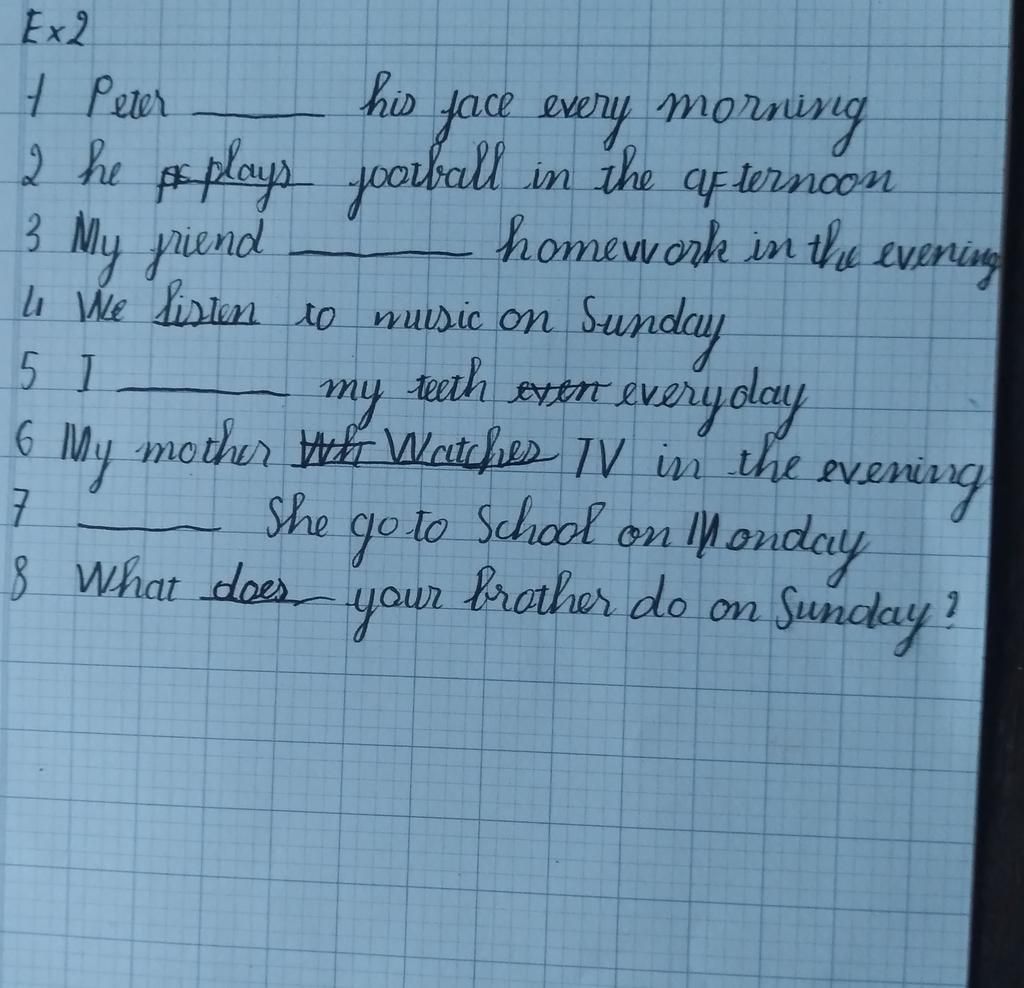 Ex2
1 Peter ______ his face every morning
2 he plays football in the afternoon
3 My friend ______ homework in the evening
4 We listen to music on Sunday
5 I ______ my teeth everyday
6 My mother Watches TV in the evening
7 ______ She go to School on Monday
8 What does your brother do on Sunday?